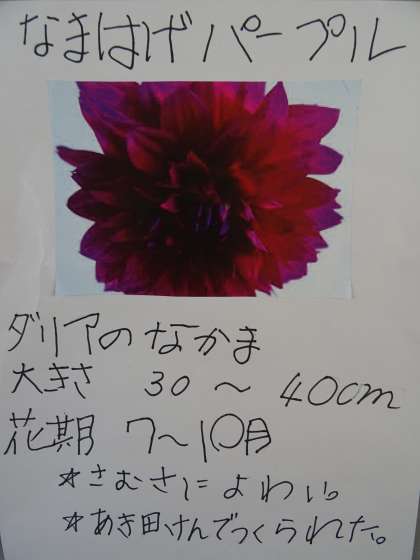 なまはげパープル
ダリアのなかま
大きさ 30～400cm
花期 7～10月
☆さむさによわい。
☆あき田けんでつくられた。